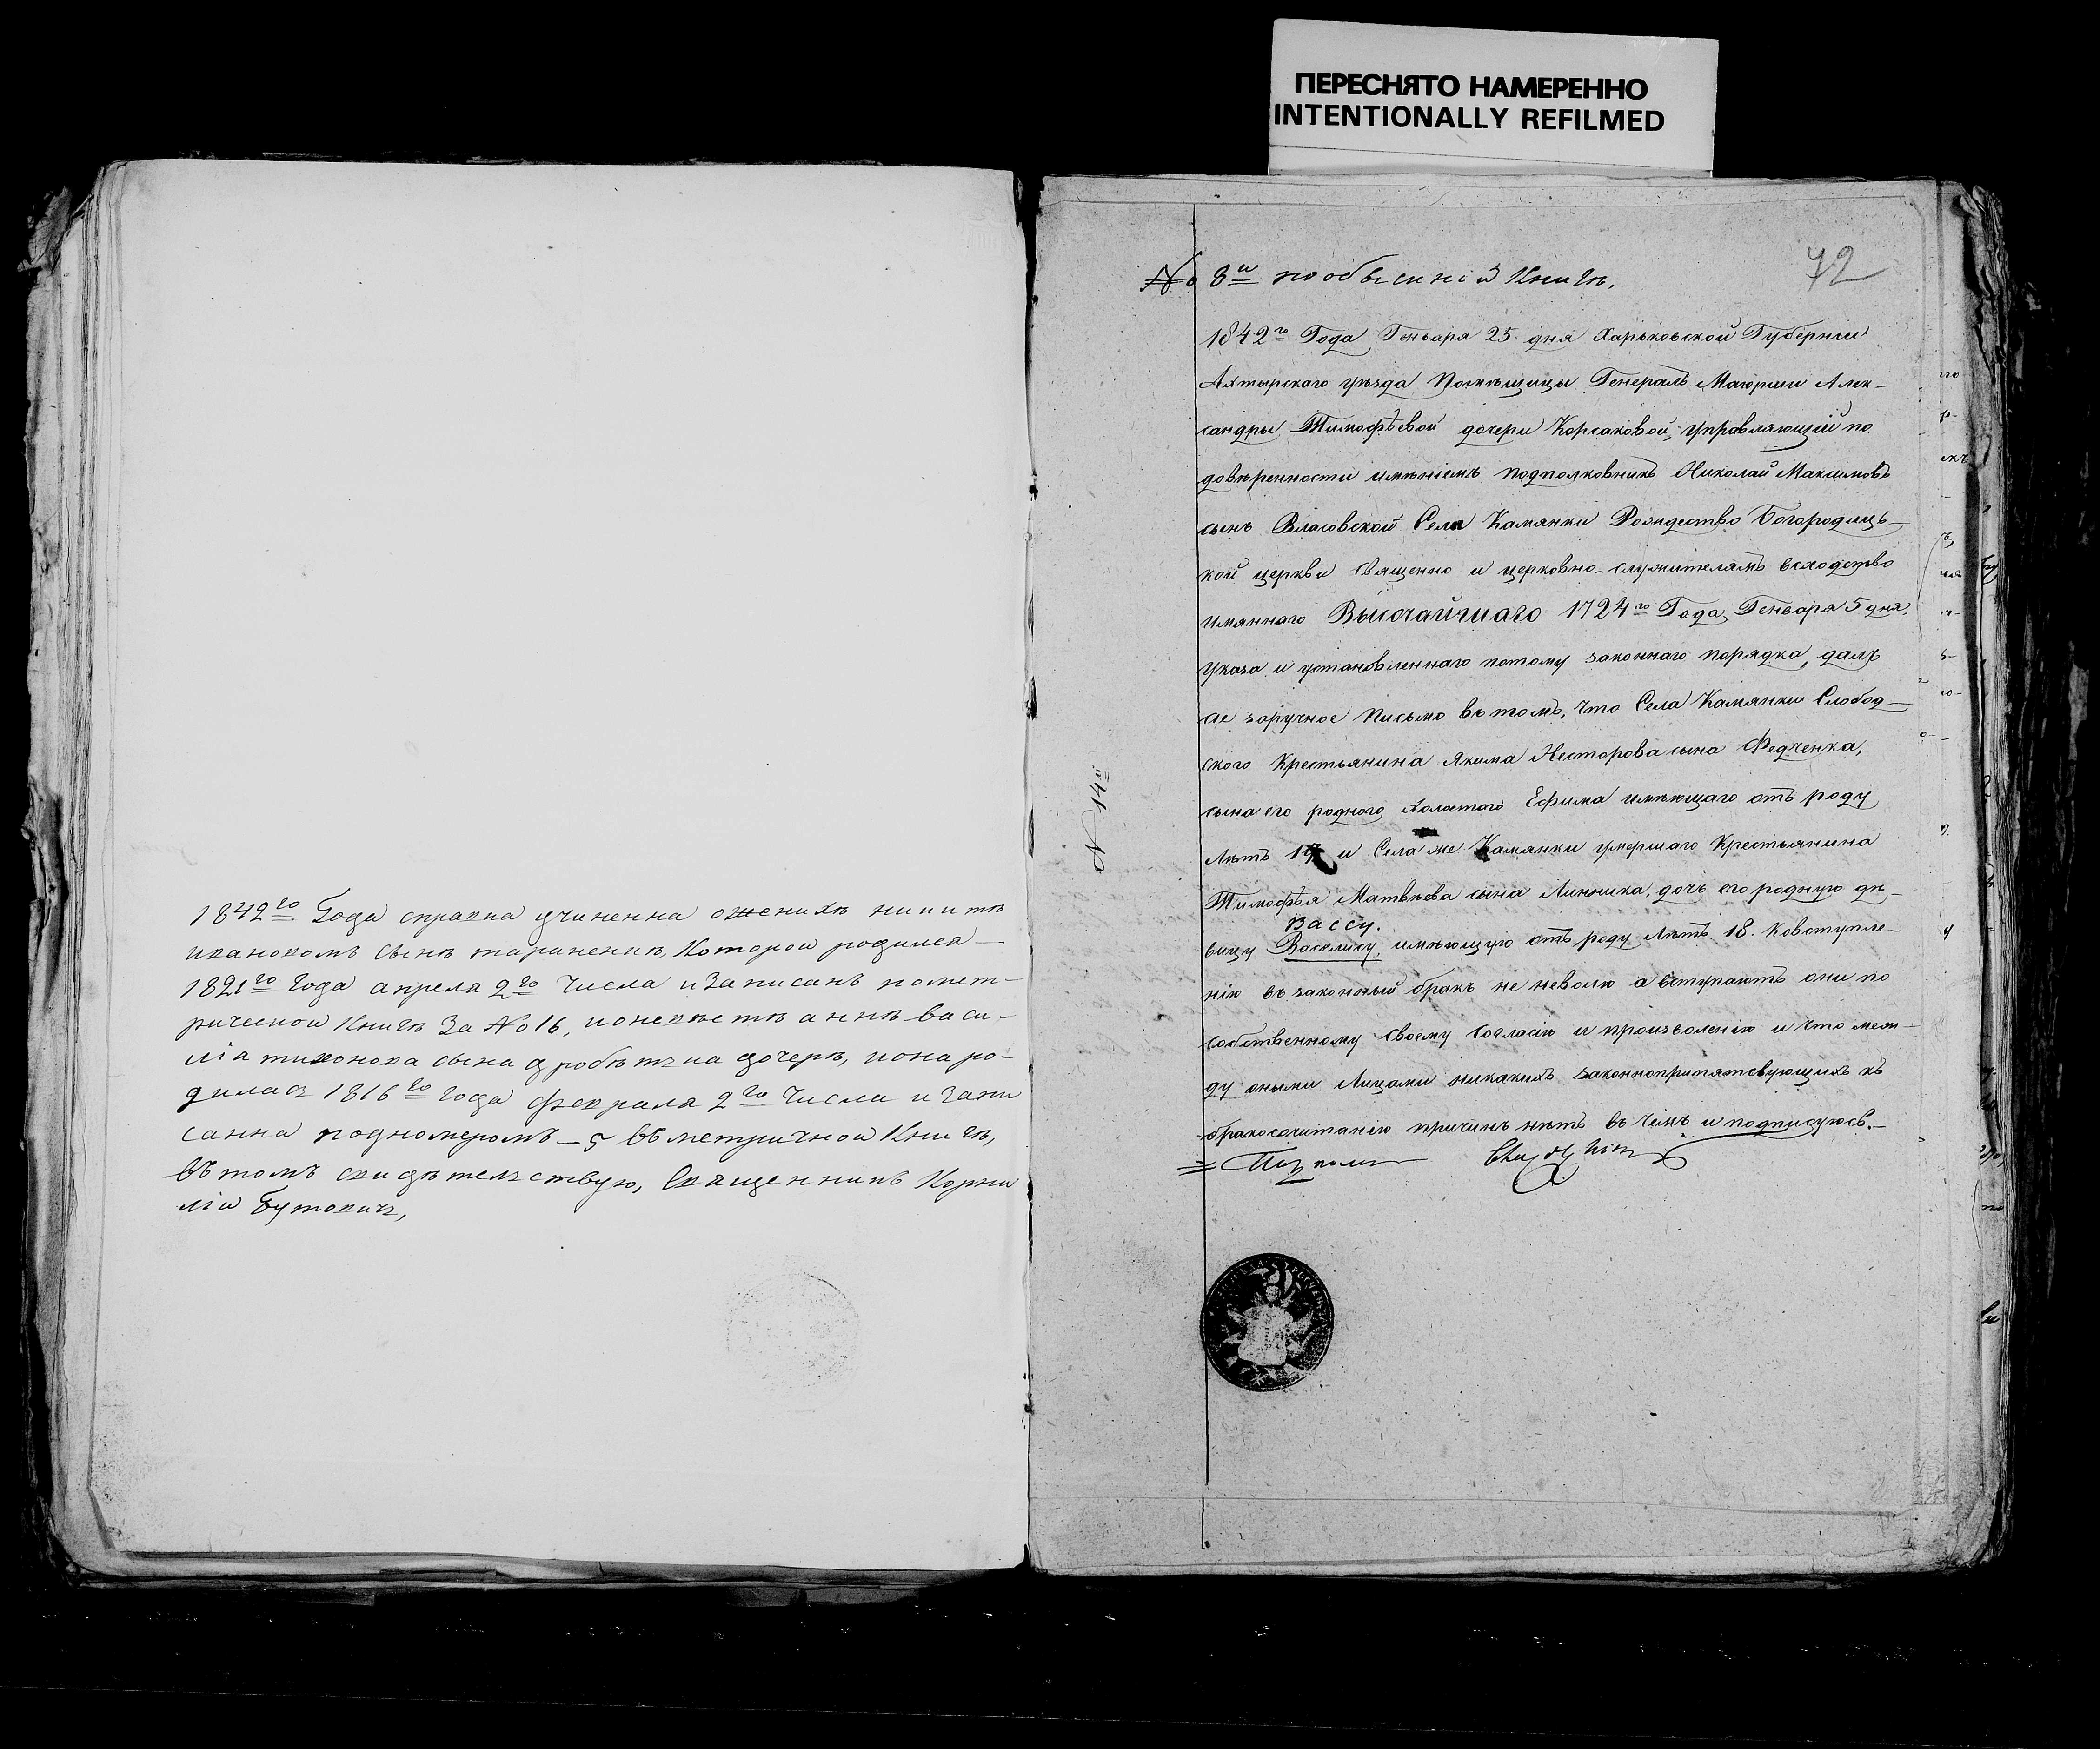 ПЕРЕСНЯТО НАМЕРЕННО
INTENTIONALLY REFILMED
1842го Года справка учиненна ожених никитѣ
ивановомъ сынѣ тараненкѣ, Которой родился
1821го года апреля 2го Числа и Записанъ помет-
рической Книгѣ За No 16, и оневѣстѣ аннѣ васи-
лія тихонова сына дробѣтъка дочерѣ, иона ро-
диласъ 1816го года февраля 2го Числа и Запи
санна подномеромъ 5 въ метричной Книгѣ,
Въ томъ свидѣтельствую, Священникъ Корни
лій Бутовичъ,
72
No 8й пообыскной Книгѣ.
1842го Года Генваря 25 дня Харьковской Губерніи
Ахтырскаго уѣзда Помѣщицы Генералъ Маіорши Алек-
сандры Тимофѣевой дочери Корсаковой, управляющій по
довѣренности имѣніемъ подполковникъ Николай Максимовъ
сынъ Власовской Села Камянки Рождество Богородицъ-
кой церкви Священно и церковно-служителямъ вслодство
имяннаго Высочайшаго 1724го Года Генваря 5 дня.
Указа и установленнаго потому законнаго порядка, далъ
сіе заручное Письмо въ томъ, что Села Камянки Слобод-
ского Крестьянина Якима Несторова сына Федченка,
сына его роднаго холостого Ефима имѣющаго отъ роду
Лѣтъ 19 и Села же Камянки умершаго Крестьянина
Тимофѣя Матвѣева сына Линника, дочь его родную дѣ-
Вассу.
вицу Василису, имѣющую отъ роду Лѣтъ 18. Ковступле-
нію въ законный бракъ не неволю а вступаютъ они по
собственному своему Согласію и произволенію и что меж-
ду оными Лицами никакихъ законноприпятствующихъ къ
бракосочитанію причинъ нѣтъ въ чемъ и подписуюсь.-
N 14й